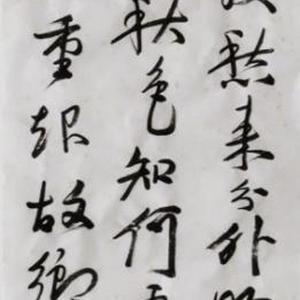 愁来分外
秋色知何
重
故鄉